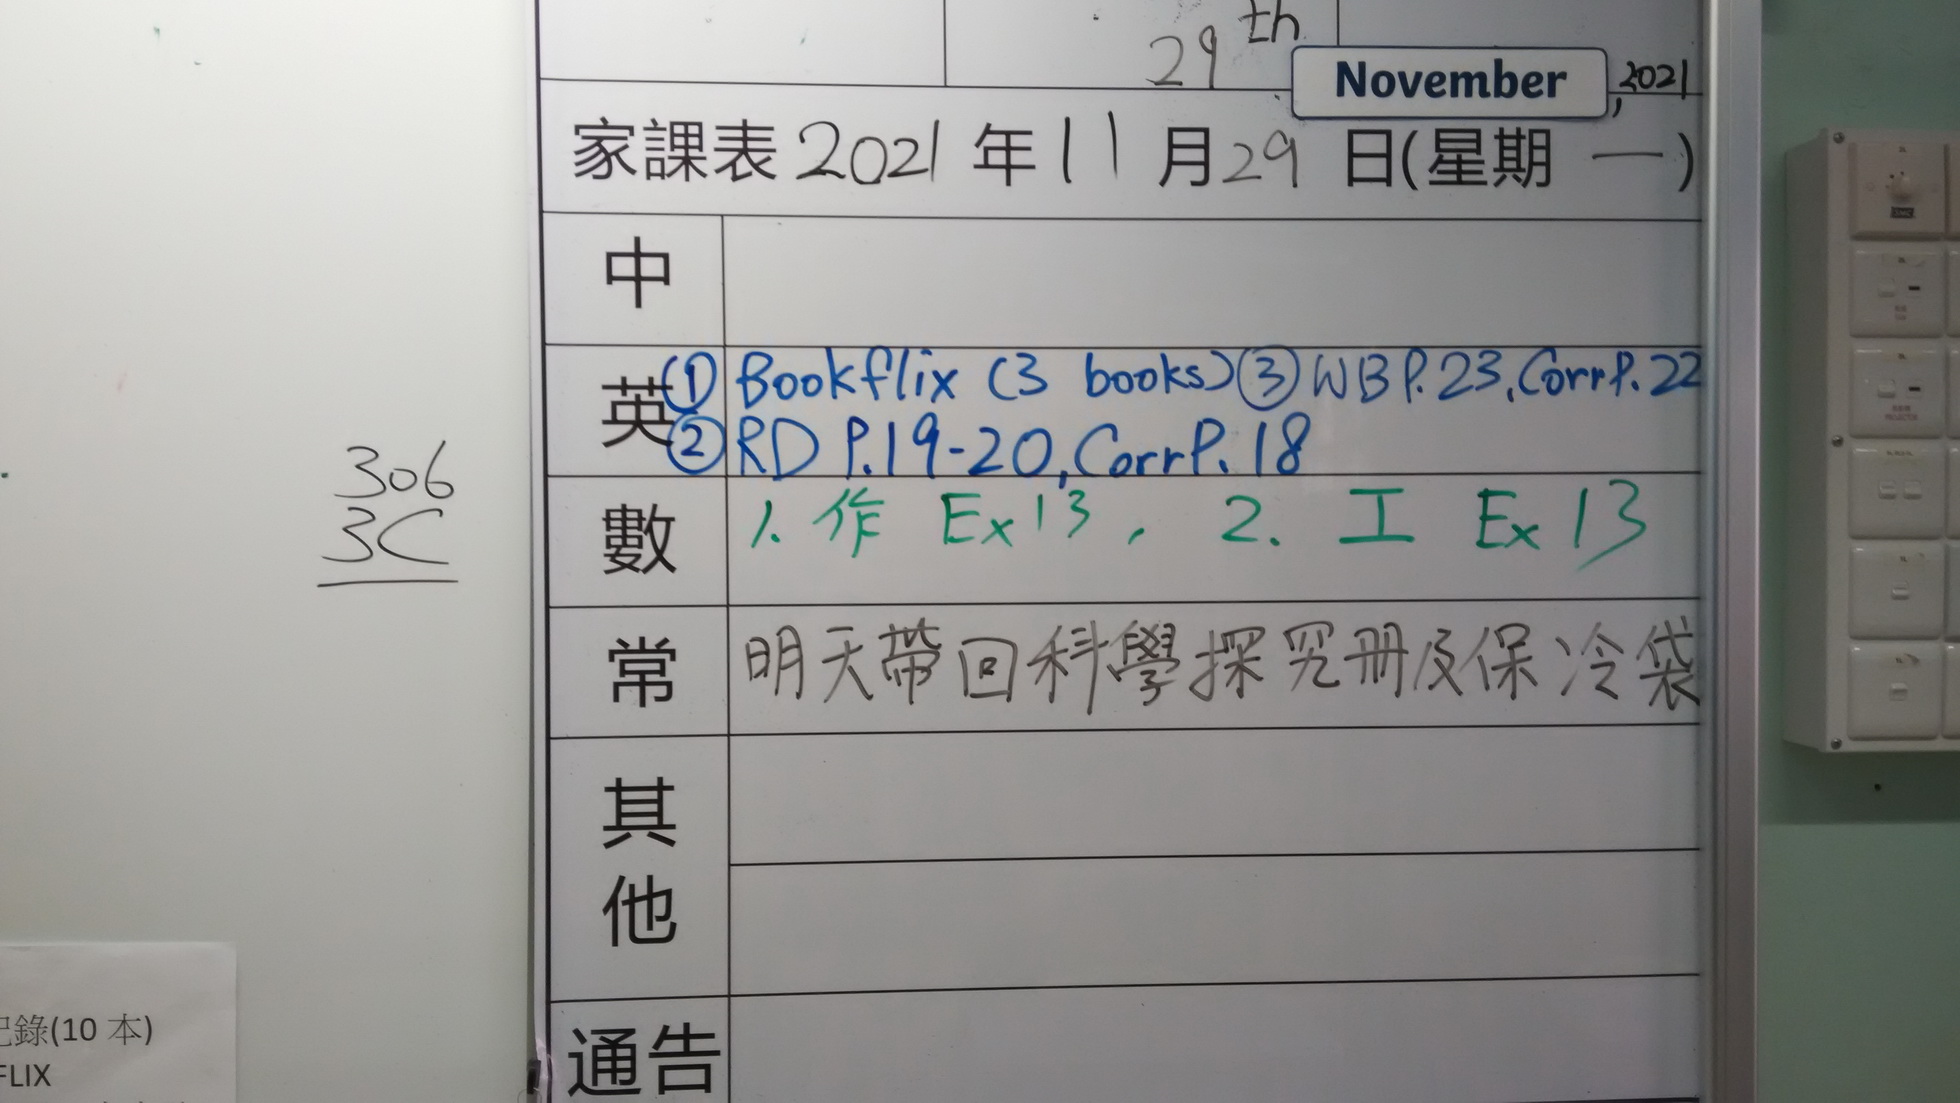 29th
November, 2021
家課表 2021 年 11 月 29 日(星期 一)
中
英 ① Bookflix (3 books) ③ WB P.23, Corr P.22
② RD P.19-20, Corr P. 18
數 1. 作 Ex 13, 2. 工 Ex 13
常 明天帶回科學探究冊及保冷袋
其他
通告
306
3C
記錄(10 本)
FLIX